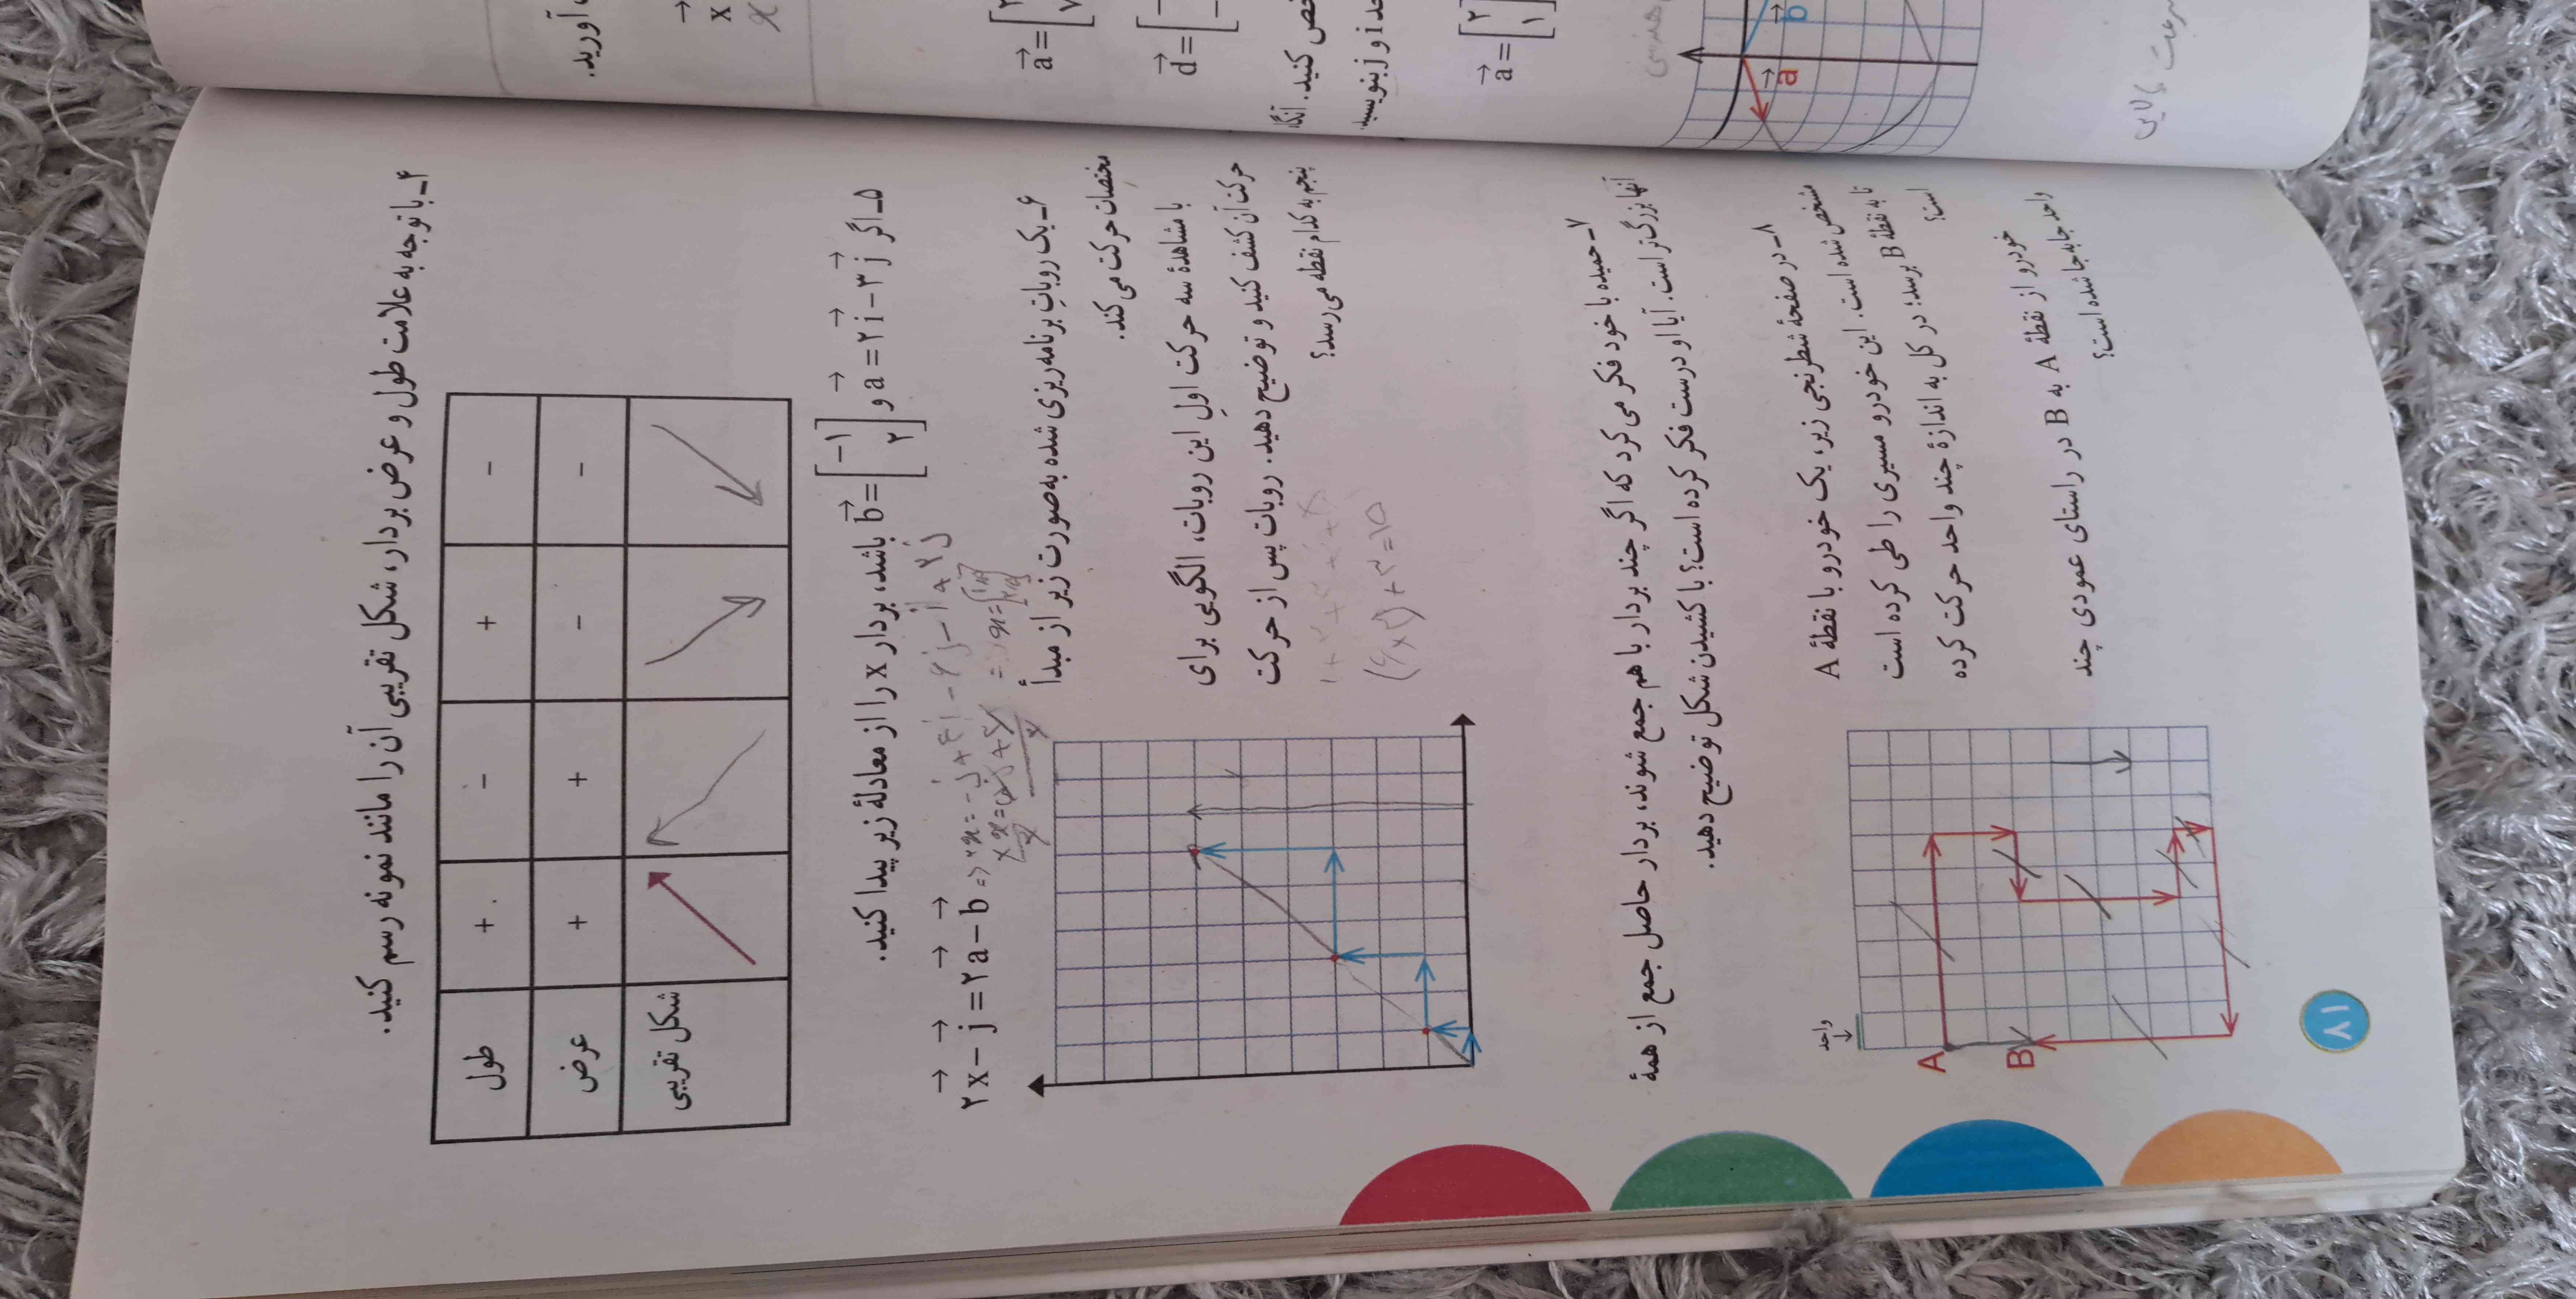 ۴ـ با توجه به علامت طول و عرض بردار، شکل تقریبی آن را مانند نمونه رسم کنید.
طول + - + -
عرض + + - -
شکل تقریبی
۵ـ اگر a = ۲i − ۳j و b = [−۱ ۲] باشد، بردار x را از معادلهٔ زیر پیدا کنید.
۲x − j = ۲a − b
۶ـ یک روباتِ برنامه‌ریزی شده به‌صورت زیر از مبدأ
مختصات حرکت می‌کند.
با مشاهدهٔ سه حرکت اولِ این روبات، الگویی برای
حرکت آن کشف کنید و توضیح دهید. روبات پس از حرکت
پنجم به کدام نقطه می‌رسد؟
۷ـ حمیده با خود فکر می‌کرد که اگر چند بردار با هم جمع شوند، بردار حاصل جمع از همهٔ
آنها بزرگ‌تر است. آیا او درست فکر کرده است؟ با کشیدن شکل توضیح دهید.
۸ـ در صفحهٔ شطرنجی زیر، یک خودرو با نقطهٔ A
مشخص شده است. این خودرو مسیری را طی کرده است
تا به نقطهٔ B برسد؛ در کل به اندازهٔ چند واحد حرکت کرده
است؟
خودرو از نقطهٔ A به B در راستای عمودی چند
واحد جابه‌جا شده است؟
واحد
A
B
۸۱
آورید.
x
a = [
d = [
کنید.
i و j بنویسید
a = [۲ ۱]
a
b